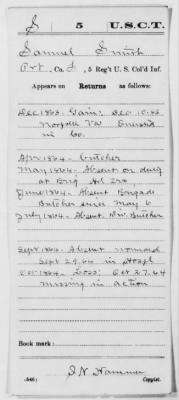 S 5 U.S.C.T.
Samuel Smith
Pvt., Co. I, 5 Reg't U. S. Col'd Inf.
Appears on Returns as follows:
Dec 1863. Gain: Dec. 10-63
Norfolk Va Enlisted
in Co.
Apr 1864. Butcher
May 1864. Absent on duty
at Brig Hd Qrs
June 1864. Absent Brigade
Butcher since May 6
July 1864. Absent. Div. Butcher
Sept 1864. Absent wounded
Sept 29.64 in Hospl
Oct 1864. Loss: Oct 27.64
missing in action
Book mark:
(546) J. N. Hammer
Copyist.